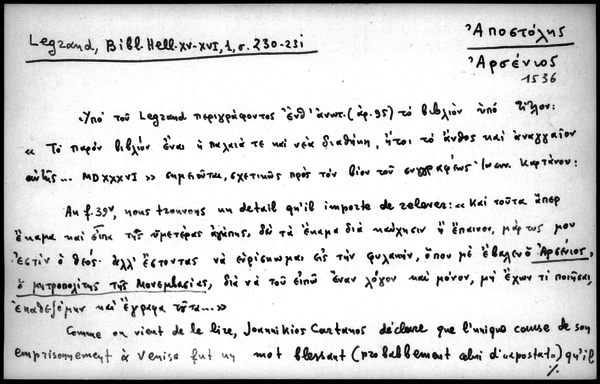 Legrand, Bibl. Hell. XV-XVI, 1, σ. 230-231
Ἀποστόλης
Ἀρσένιος
1536
Ὑπὸ τοῦ Legrand περιγράφοντος ἐνθ' ἀνωτ. (ἀρ. 95) τὸ βιβλίον ὑπὸ τίτλον:
« Τὸ παρὸν βιβλίον ἔναι ἡ παλαιά τε καὶ νέα διαθήκη, ἤτοι τὸ ἄνθος καὶ ἀναγκαῖον
αὐτῆς... MDXXXVI » σημειοῦται, σχετικῶς πρὸς τὸν βίον τοῦ συγγραφέως Ἰωαν. Καρτάνου:
Au f. 39ᵛ, nous trouvons un detail qu'il importe de relever: « Καὶ τοῦτα ἅπερ
ἔκαμα καὶ εἶπα τῆς ὑμετέρας ἀγάπης, δὲ τὰ ἔκαμα διὰ καύχησιν ἢ ἔπαινον, μάρτυς μου
ἐστὶν ὁ θεός· ἀλλ' ἔστοντας νὰ εὑρίσκωμαι εἰς τὴν φυλακήν, ὅπου μὲ ἔβαλεν ὁ Ἀρσένιος,
ὁ μητροπολίτης τῆς Μονεμβασίας, διὰ νὰ τοῦ εἰπῶ ἕναν λόγον καὶ μόνον, μὴ ἔχων τί ποιῆσαι,
ἐκαθεζόμην καὶ ἔγραφα ταῦτα...»
Comme on vient de le lire, Joannikios Cartanos déclare que l'unique cause de son
emprisonnement à Venise fut un mot blessant (probablement celui d'«apostat») qu'il
%